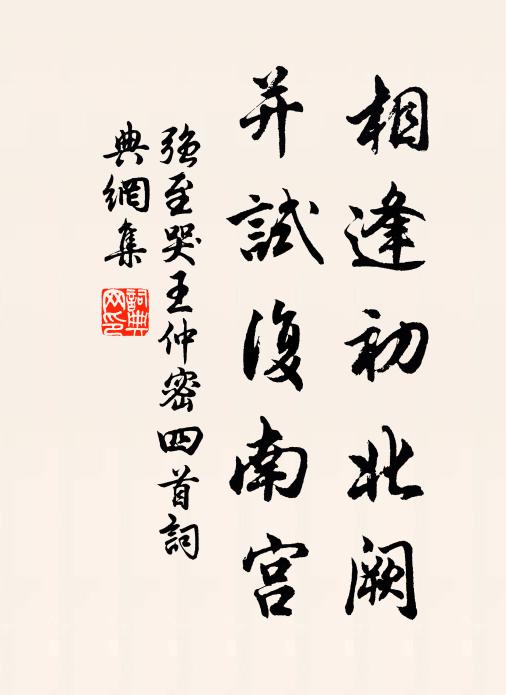 相逢初北阙
并試復南宫
強至哭王仲密四首詞
典網集
詞典網印